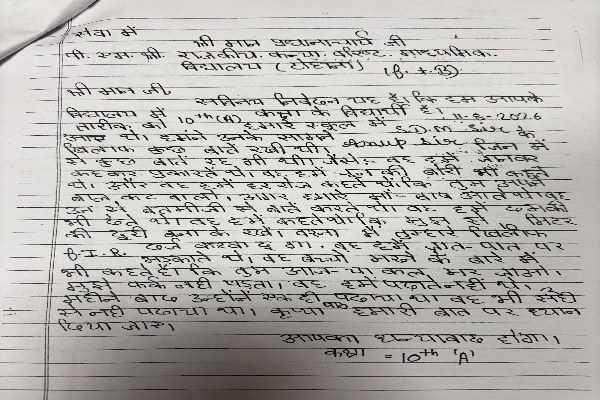 सेवा में
श्री मान प्रधानाचार्य जी
पी. एम. श्री राजकीय कन्या वरिष्ट माध्यमिक
विद्यालय (टोहाना)
श्री मान जी,
सविनय निवेदन यह है कि हम आपके
विद्यालय में 10th(A) कक्षा के विद्यार्थी है। 11-8-2026
तारीख को हमारे स्कूल में S.D.M Sir
आए थे। हमने उनके सामने Sir के
खिलाफ कुछ बाते रखी थी। जिन में
से कुछ बाते रह गी थी। जैसे:- वह हमें जानवर
कहकर पुकारते थे। वह हमें की बोरी भी कहते
थे। और वह हमें हर रोज कहते थे कि तुम अपने
बाल कटवालो। अगर हमारे माँ-बाप आते थे। वह
उन से बतमीजी से बाते करते थे। वह हमें धमकी
भी देते थे। वह हमें कहते थे कि मुझ से मिटर
की दुरी बना के रखे। वरना मैं तुम्हारे खिलाफ
F.I.R. दर्ज करवा दू गा। वह हमें जात-पात पर
भड़काते थे। वह बच्चो मरने के बारे में
भी कहते है। कि तुम आज या कल मर जाओ।
मुझे फर्क नहीं पड़ता। वह हमें पढ़ाते नहीं थे।
महीने बाद उन्होंने एक ही पढाया था वह भी सही
से नहीं पढाया था। कृप्या हमारी बात पर ध्यान
दिया जाए।
आपका धन्यावाद होगा।
कक्षा = 10th 'A'